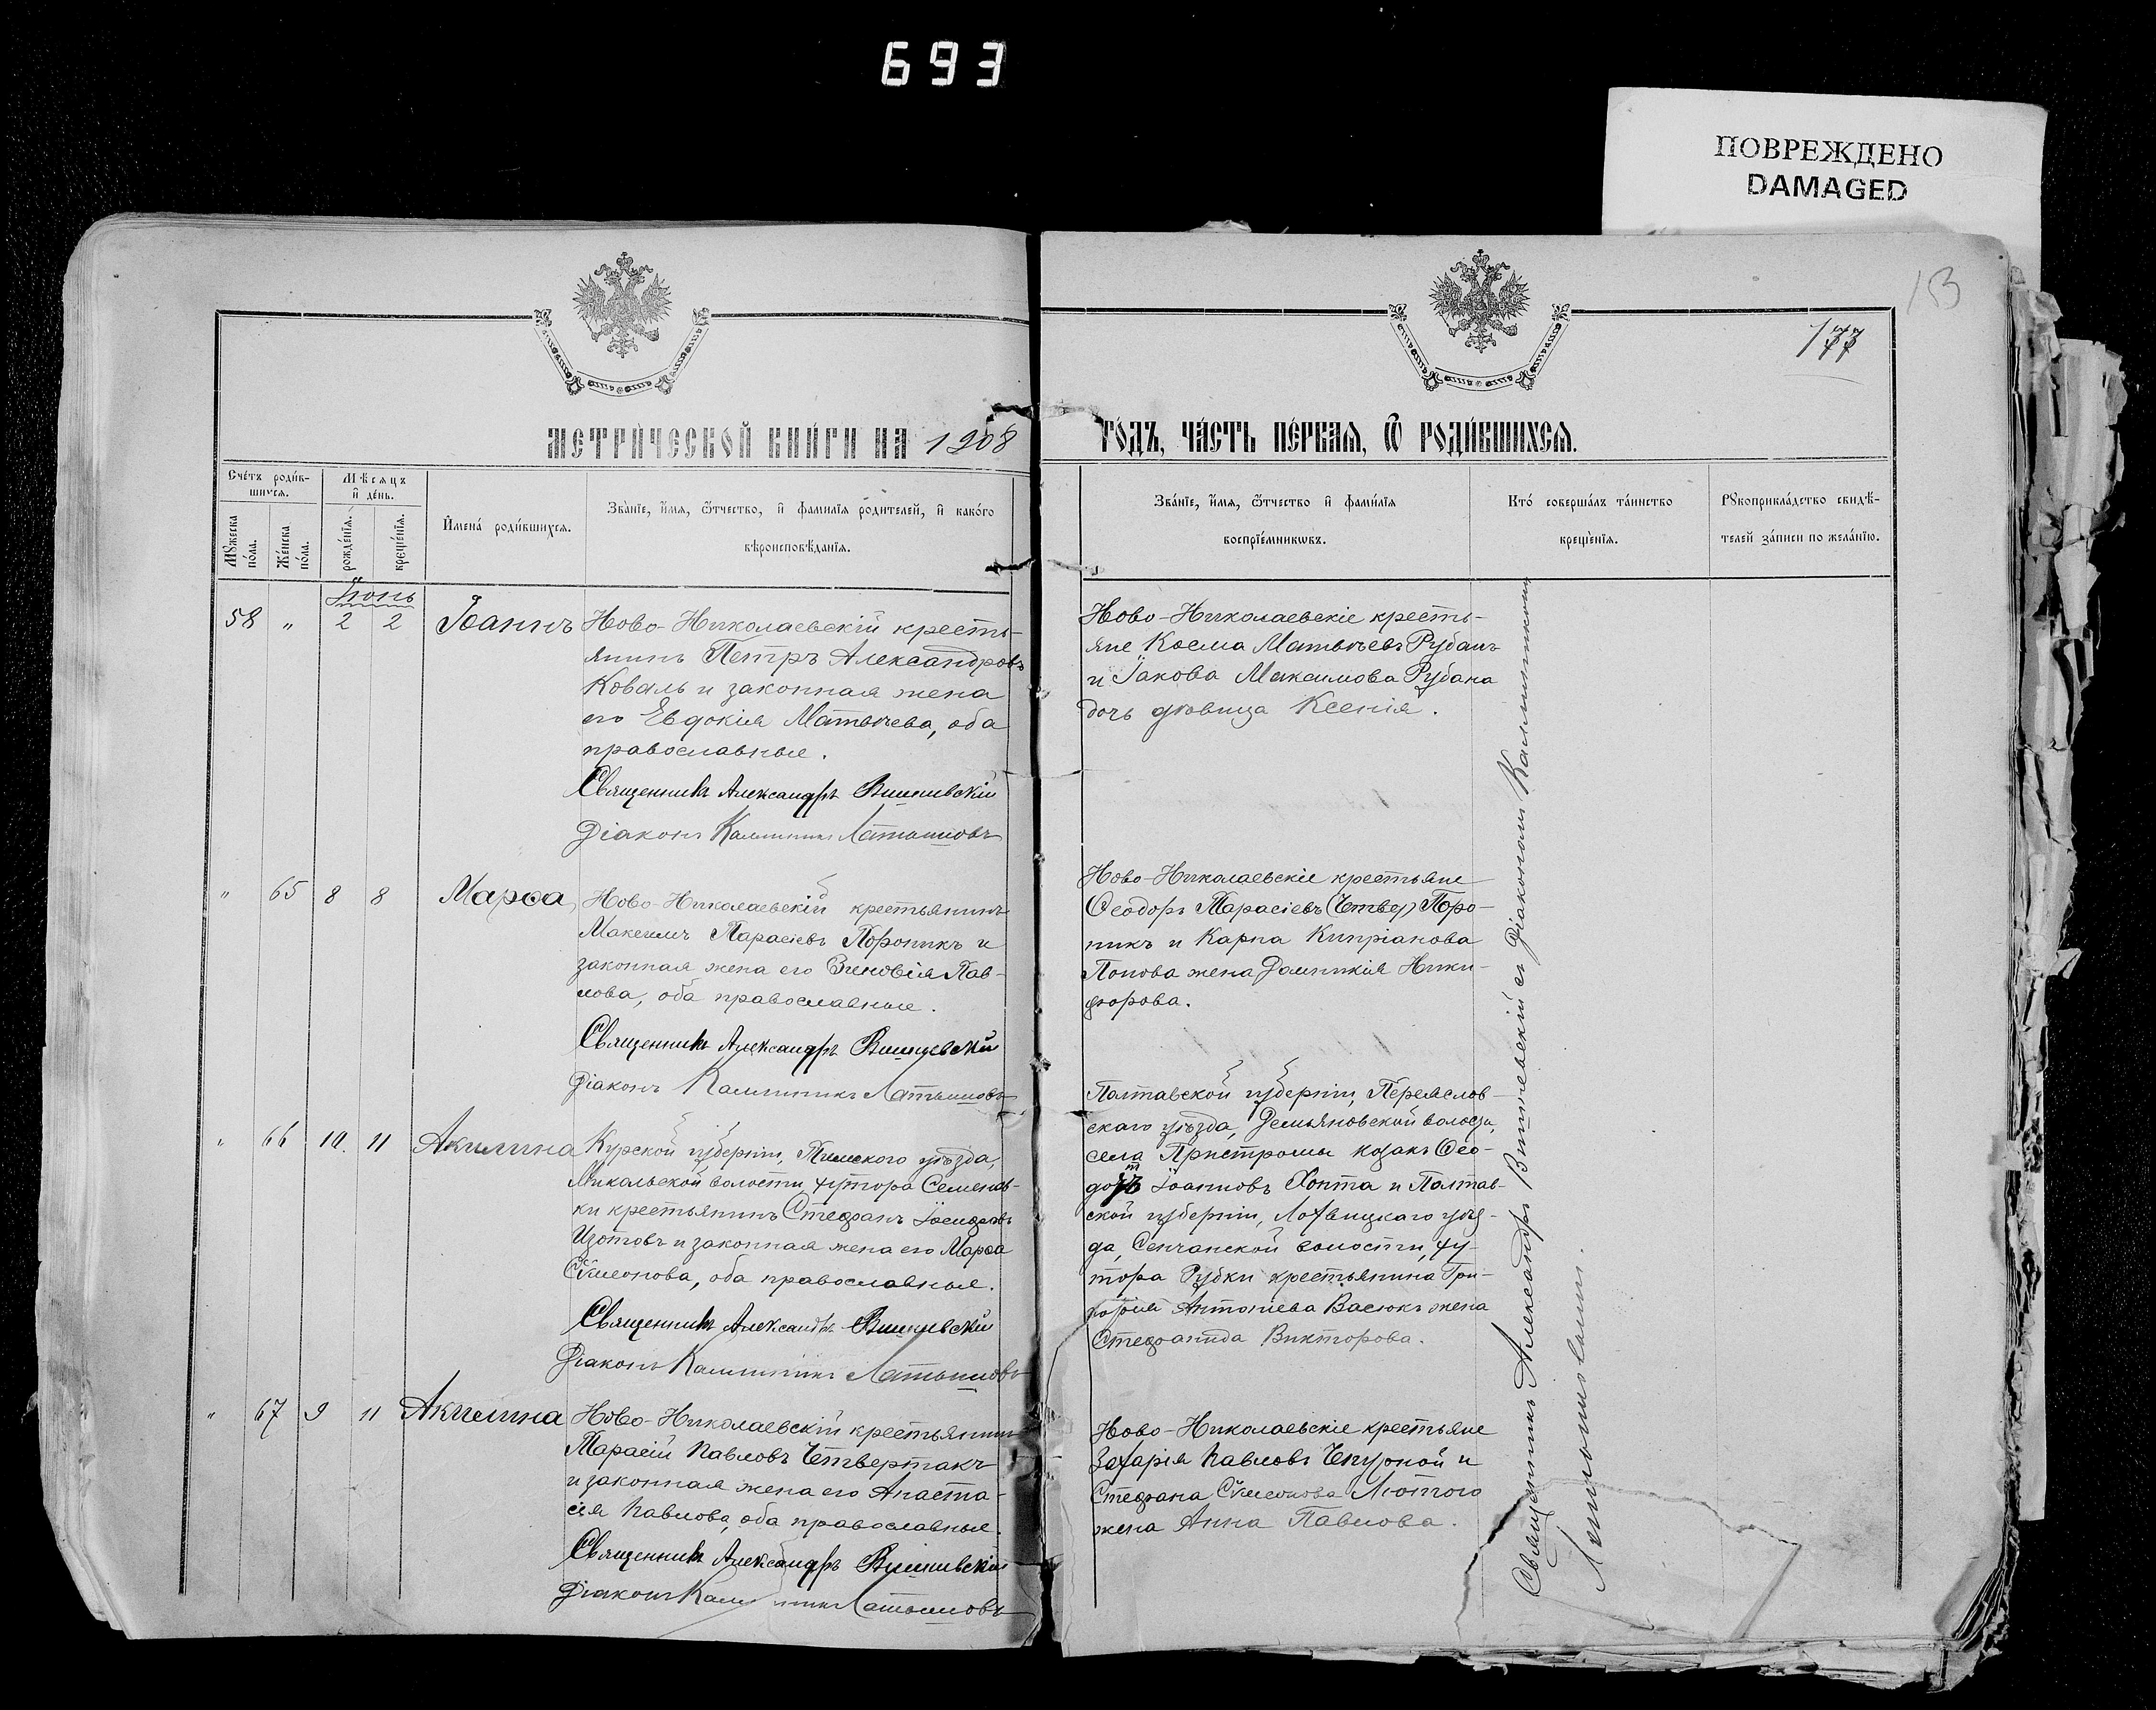 693
ПОВРЕЖДЕНО
DAMAGED
153
177
МЕТРИ́ЧЕСКОЙ КНИ́ГИ НА 1908
ГО́ДЪ, ЧА́СТЬ ПЕ́РВАЯ, Ѡ РОДИ́ВШИХСЯ.
Сче́тъ роди́в-
шихся.
Мѣсяцъ
и де́нь.
Мꙋжеска по́ла.
Же́нска по́ла.
рожде́нїя.
креще́нїя.
Имена́ роди́вшихся.
Зва́нїе, и́мя, ѻ́тчество, и фами́лїя роди́телей, и како́го
вѣроисповѣ́данїя.
Зва́нїе, и́мя, ѻ́тчество и фами́лїя
воспрїе́мникѡвъ.
Кто́ соверша́лъ та́инство
креще́нїя.
Рꙋкоприкла́дство свидѣ́-
телей за́писи по жела́нїю.
Іюнь
58 " 2 2 Іоаннъ
Ново-Николаевскій кресть-
янинъ Петръ Александровъ
Коваль и законная жена
его Евдокія Матвѣева, оба
православные.
Священникъ Александръ Вишневскій
Діаконъ Каллиникъ Латышовъ
Ново-Николаевскіе кресть-
яне Косма Матвѣевъ Рубанъ
и Іакова Максимова Рубана
дочь дѣвица Ксенія.
" 65 8 8 Марѳа
Ново-Николаевскій крестьянинъ
Максимъ Тарасіевъ Пороникъ и
законная жена его Зиновія Пав-
лова, оба православные.
Священникъ Александръ Вишневскій
Діаконъ Каллиникъ Латышовъ
Ново-Николаевскіе крестьяне
Ѳеодоръ Тарасіевъ (Четвер) Поро-
никъ и Карпа Кипріанова
Попова жена Домникія Ники-
форова.
" 66 10. 11 Акилина
Курской губерніи, Тимского уѣзда,
волости хутора Семенов-
ки крестьянинъ Стефанъ Іосифовъ
Изотовъ и законная жена его Марѳа
Сѵмеонова, оба православные.
Священникъ Александръ Вишневскій
Діаконъ Каллиникъ Латышовъ
Полтавской губерніи, Переяслов-
скаго уѣзда, Демьяновской волости,
села Пристромы козакъ Ѳео-
Іоанновъ Хопта и Полтав-
ской губерніи, Лохвицкаго уѣз-
да, Сенчанской волости, ху-
тора Рубки крестьянина Гри-
горія Антоніева Васюкъ жена
Стефанида Викторова.
" 67 9 11 Акилина
Ново-Николаевскій крестьянинъ
Тарасій Павловъ Четвертакъ
и законная жена его Анаста-
сія Павлова, оба православные.
Священникъ Александръ Вишневскій
Діаконъ Каллиникъ Латышовъ
Ново-Николаевскіе крестьяне
Захарія Павловъ Чепурной и
Стефана Сѵмеонова Лютого
жена Анна Павлова.
Священникъ Александръ Вишневскій съ Діакономъ Каллиникомъ
Латышовымъ.